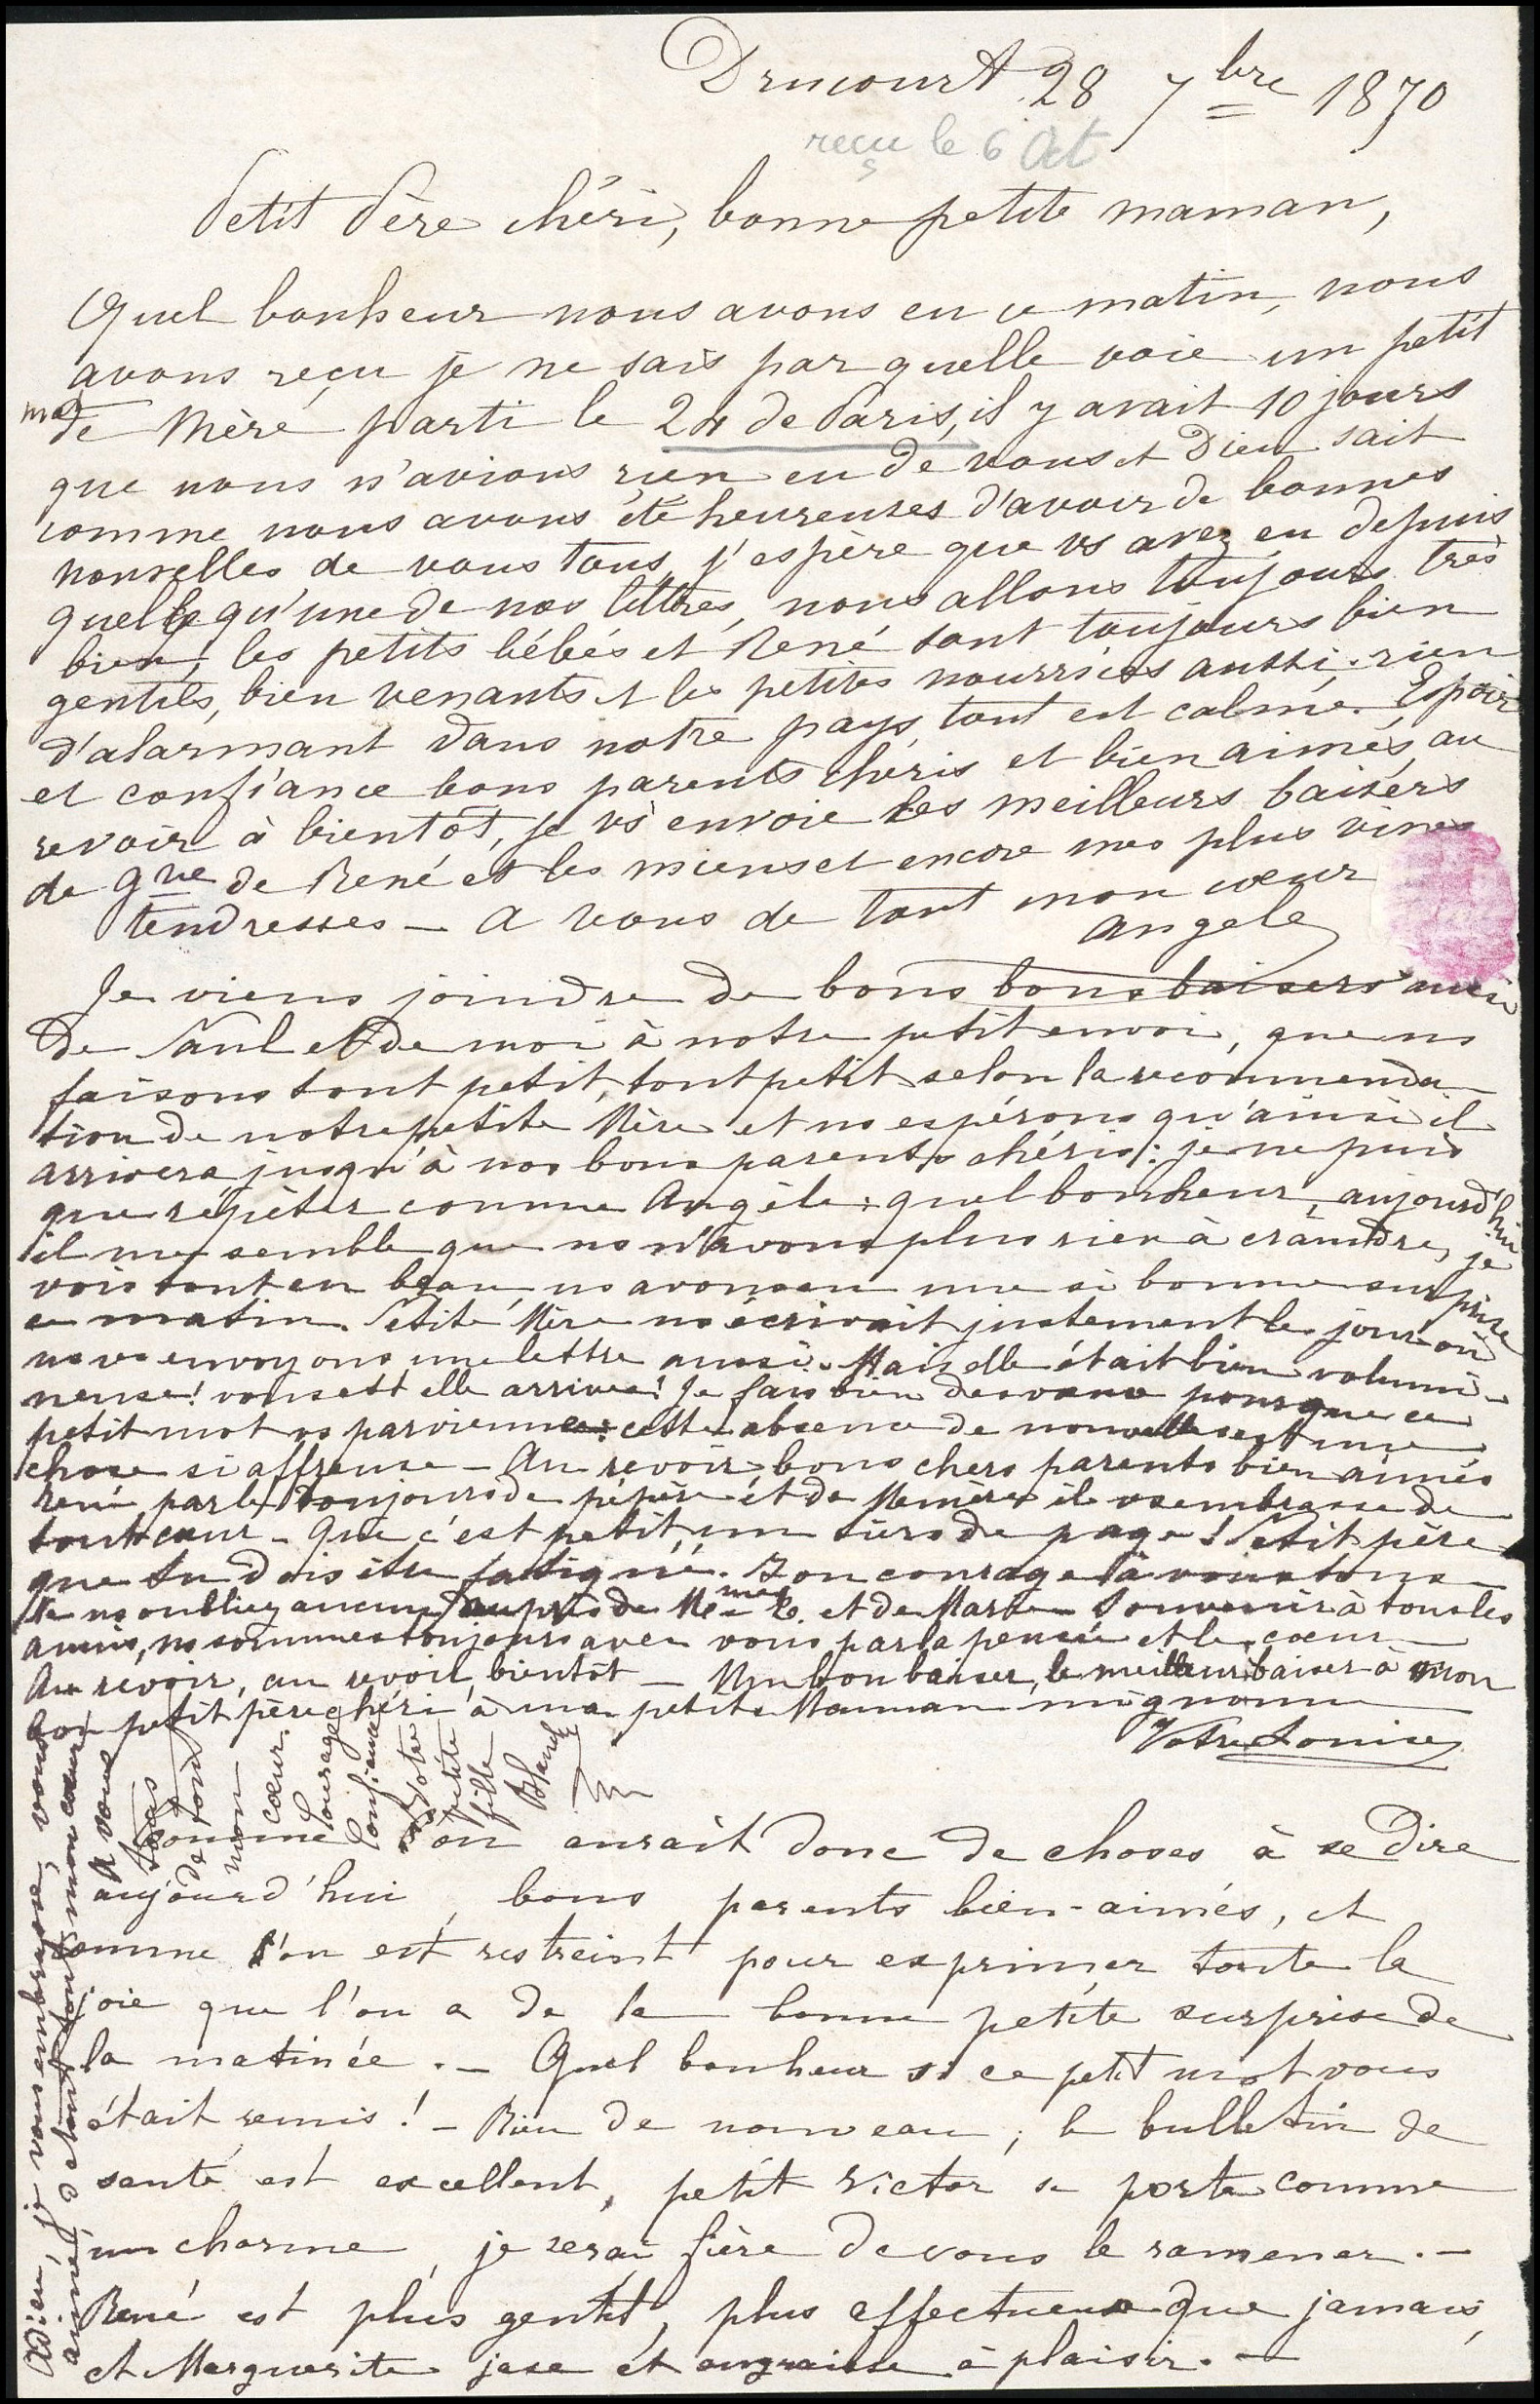 Drucourt 28 7bre 1870
reçu le 6 Oct
Petit Père chéri, bonne petite maman,
Quel bonheur nous avons eu ce matin, nous
avons reçu je ne sais par quelle voie un petit
mot
de Mère parti le 24 de Paris, il y avait 10 jours
que nous n'avions rien eu de vous et Dieu sait
comme nous avons été heureuses d'avoir de bonnes
nouvelles de vous tous, j'espère que vs avez eu depuis
quelqu'une de nos lettres, nous allons toujours très
bien, les petits bébés et René sont toujours bien
gentils, bien venants et les petites nourrices aussi, rien
d'alarmant dans notre pays, tout est calme. Espoir
et confiance bons parents chéris et bien aimés, au
revoir à bientôt, je vs envoie les meilleurs baisers
de gte de René et les miens et encore mes plus vives
tendresses — a vous de tout mon cœur
Angele
Je viens joindre de bons bons baisers aussi
de Paul et de moi à notre petit envoi, que ns
faisons tout petit, tout petit selon la recommenda-
tion de notre petite Mère et ns espérons qu'ainsi il
arrivera jusqu'à nos bons parents chéris : je ne puis
que répéter comme Angèle : quel bonheur, aujourd'hui
il me semble que ns n'avons plus rien à craindre, je
vois tout en beau, ns avons eu une si bonne surprise
ce matin. Petite Mère ns écrivait justement le jour où
ns vs envoyons une lettre aussi. Mais elle était bien volumi-
neuse ! vous est elle arrivée ? Je fais bien des vœux pour que ce
petit mot vs parvienne : cette absence de nouvelles est une
chose si affreuse — Au revoir bons chers parents bien aimés
René parle toujours de pépère et de Mémère il vs embrasse de
tout cœur — Que c'est petit un tiers de page ! Petit père
que tu dois être fatigué. Bon courage à vous tous
Ne ns oubliez aucune auprès de Me E. et de Marie Souvenir à tous les
amis, ns sommes toujours avec vous par la pensée et le cœur
Au revoir, au revoir, bientôt — Un bon baiser, le meilleur baiser à mon
bon petit père chéri à ma petite Maman mignonne
Votre Louise
Comme l'on aurait donc de choses à se dire
aujourd'hui, bons parents bien-aimés, et
comme l'on est restreint pour exprimer toute la
joie que l'on a de la bonne petite surprise de
la matinée. — Quel bonheur si ce petit mot vous
était remis ! — Rien de nouveau, le bulletin de
santé est excellent, petit Victor se porte comme
un charme, je serai fière de vous le ramener. —
René est plus gentil, plus affectueux que jamais,
et Marguerite jase et engraisse à plaisir. —
Adieu, je vous embrasse, vous
aimé de tout tout mon cœur
A vous
tous
de tout
mon
cœur.
Courage
Confiance
Votre
petite
fille
Blanche